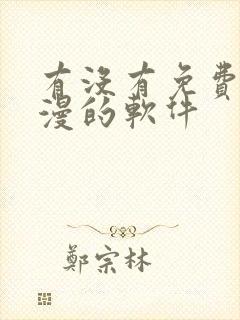 有没有免費
漫的軟件
鄭宗林